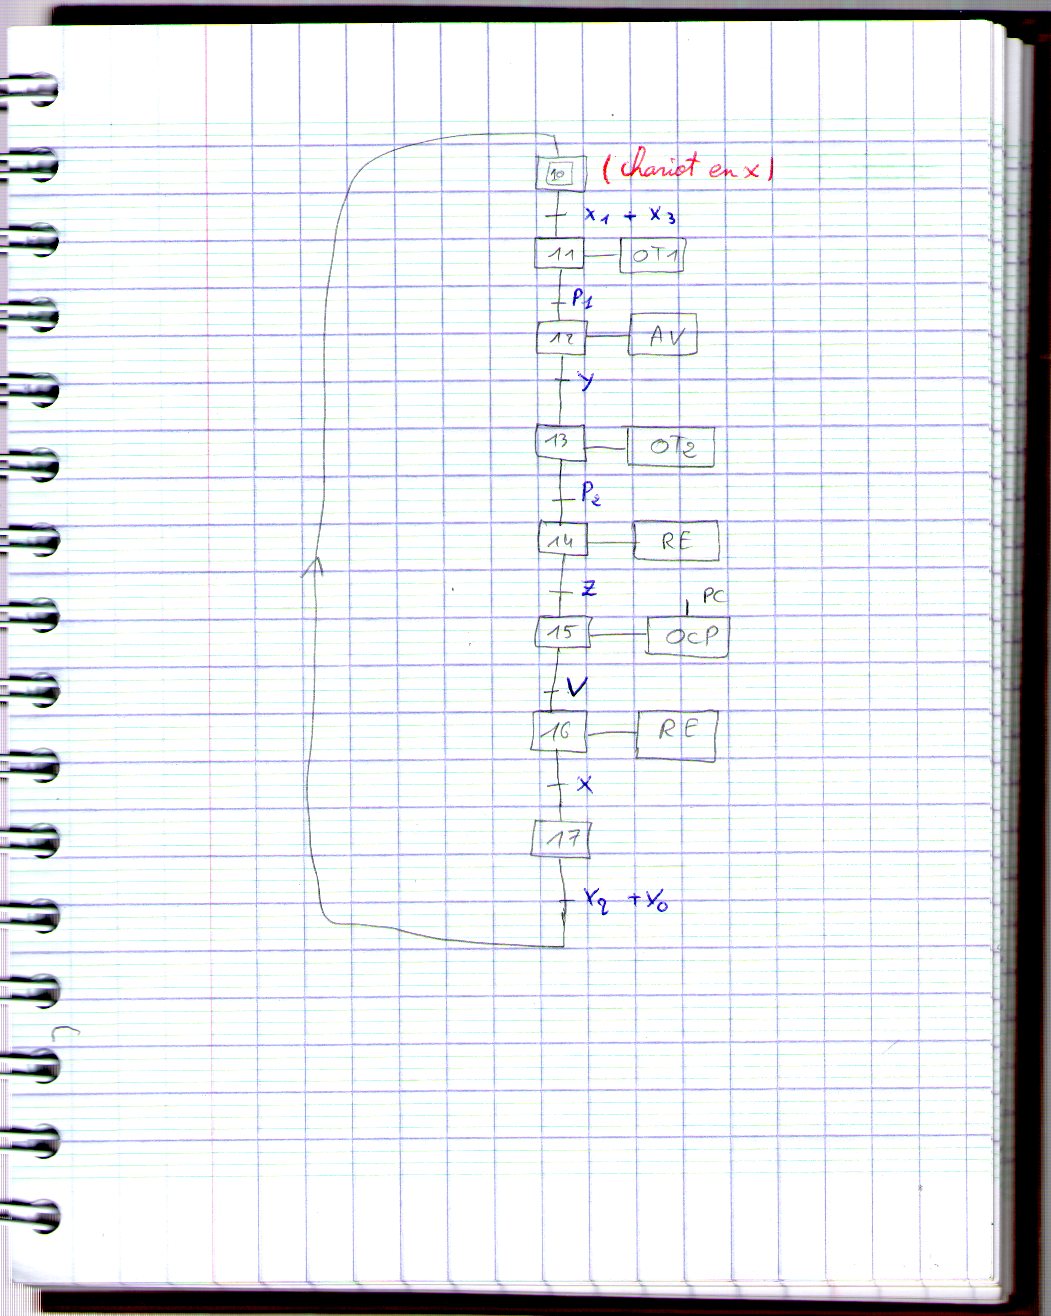 10 (chariot en x)
x1 + x3
11 OT1
P1
12 AV
y
13 OT2
P2
14 RE
Z
PC
15 OCP
V
16 RE
X
17
+ X0